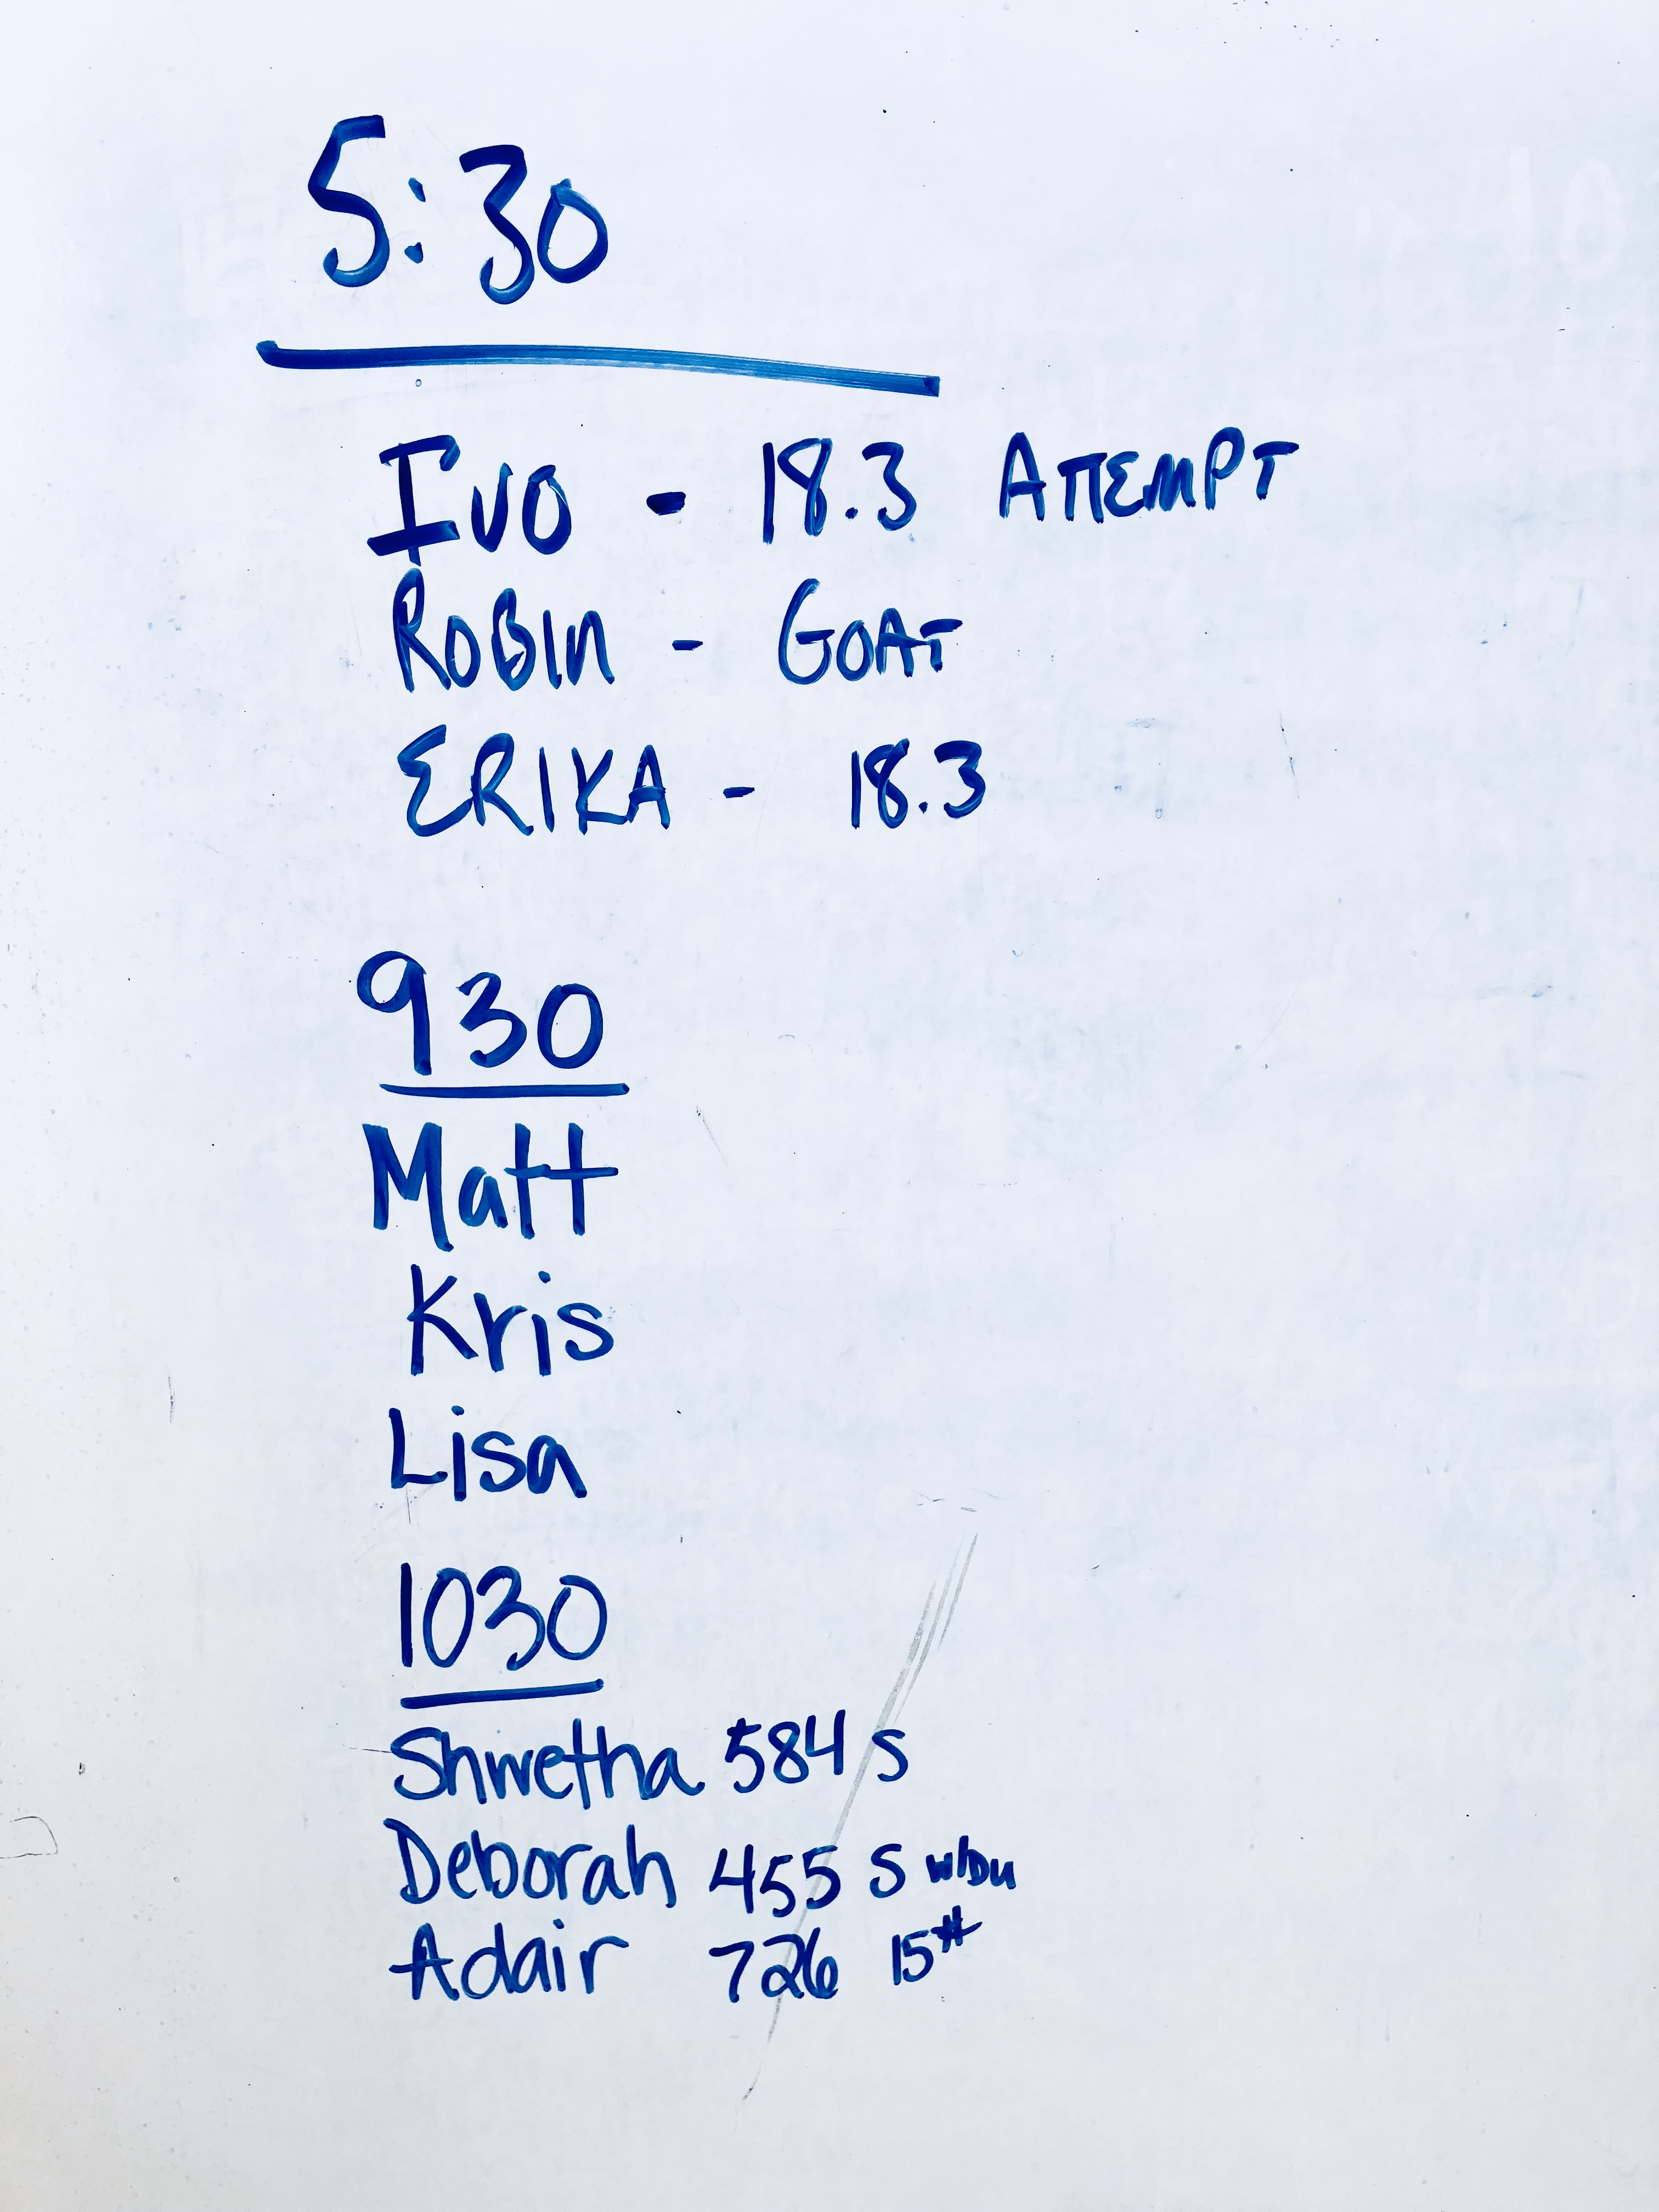 5:30
IVO - 18.3 ATTEMPT
ROBIN - GOAT
ERIKA - 18.3
930
Matt
Kris
Lisa
1030
Shwetha 584 S
Deborah 455 S w/DU
Adair 726 15#